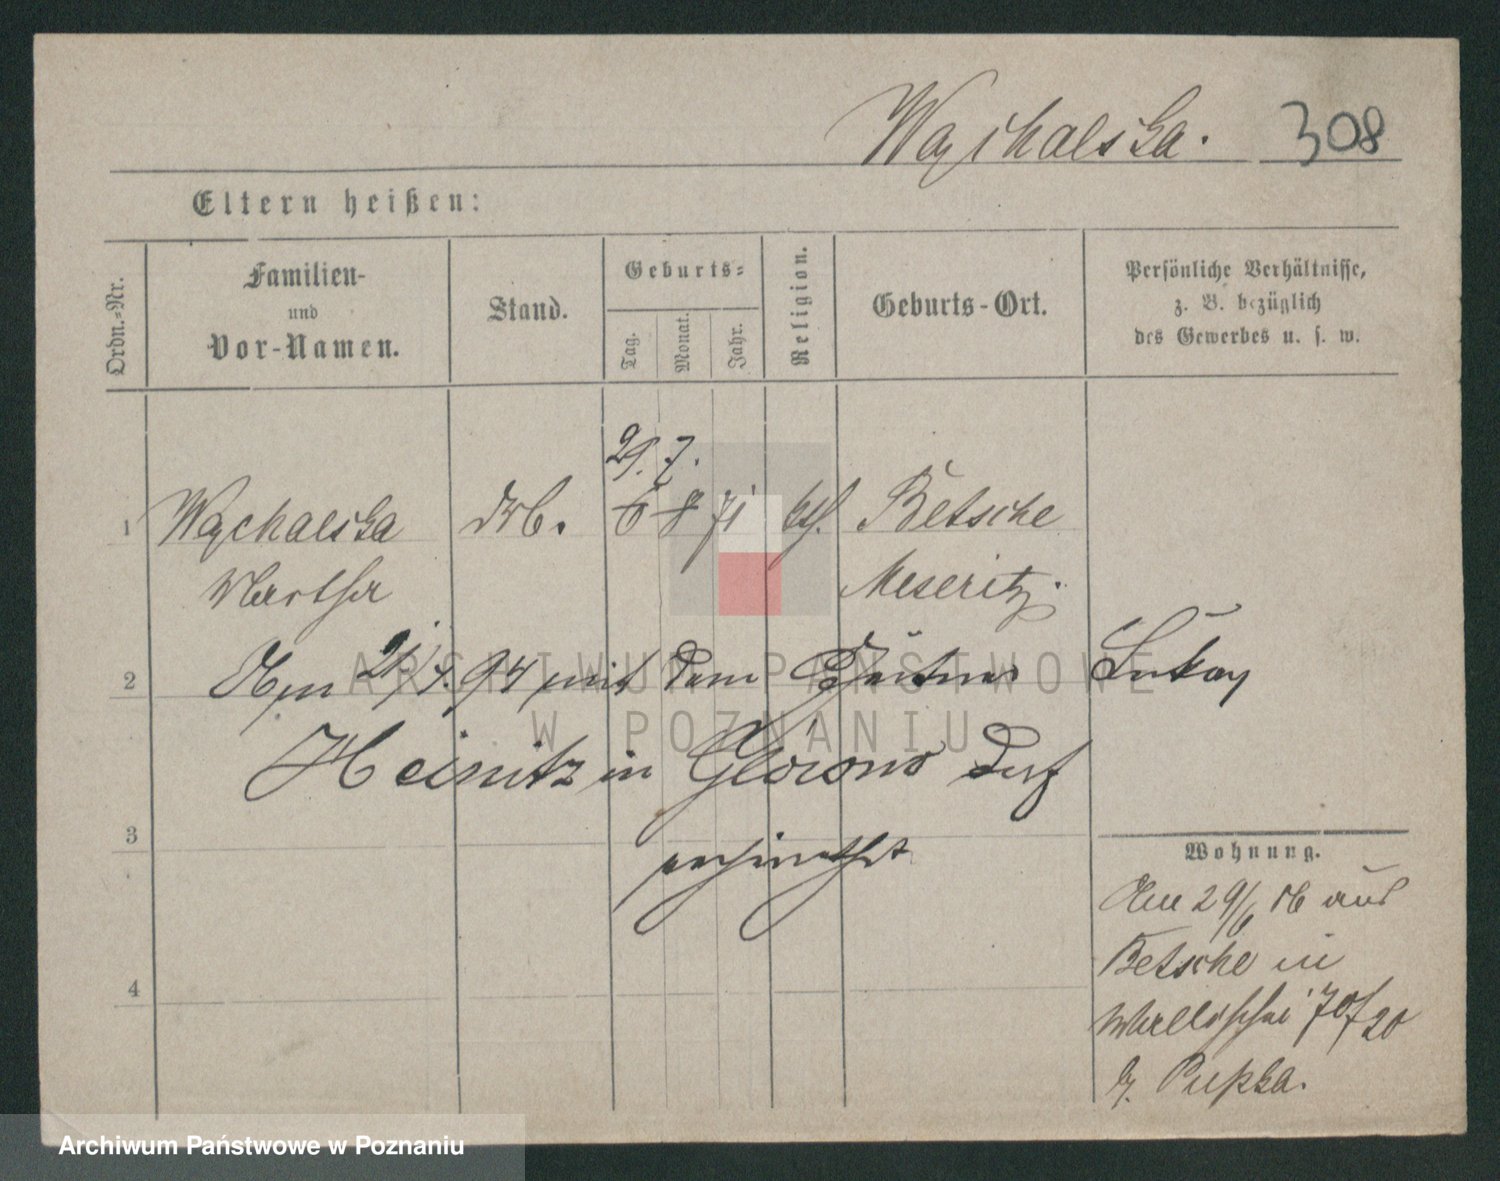 Waychalska. 308
Eltern heißen:
Ordn.-Nr.
Familien-
und
Vor-Namen.
Stand.
Geburts-
Tag.
Monat.
Jahr.
Religion.
Geburts-Ort.
Persönliche Verhältnisse,
z. B. bezüglich
des Gewerbes u. s. w.
29. 7.
1 Waychalska 6 8 71 kth. Betsche
Martha Meseritz.
2 Am 21/4. 94 mit dem Gärtner
Heinitz in Glowno Dorf
3
4
Wohnung.
Am 29/6 86 aus
Betsche in
Wallischei 70/20
b. Pupka.
ARCHIWUM PAŃSTWOWE
W POZNANIU
Archiwum Państwowe w Poznaniu